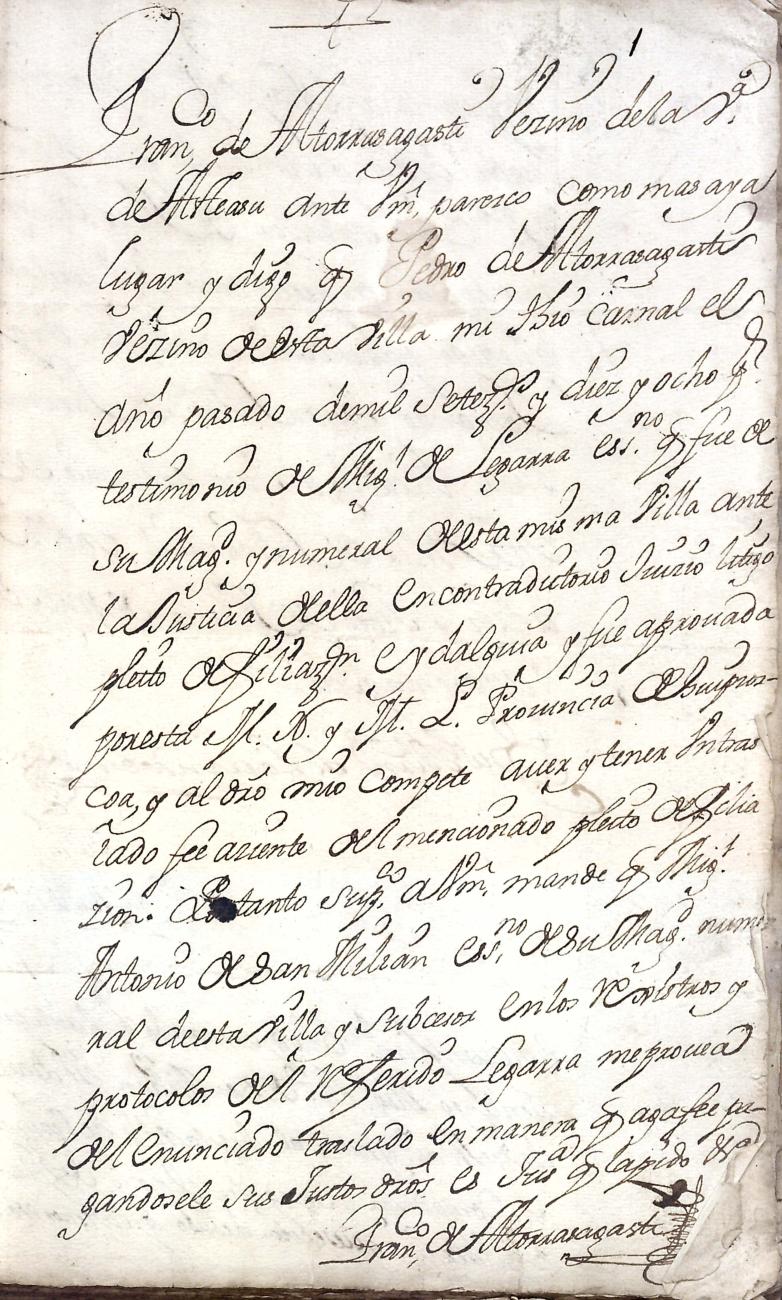 1
Fran.co de Altorrasagasti Vezino dela V.a
de Asteasu ante Vm. parezco como mas aya
lugar y digo q Pedro de Altorrasagasti
Vezino de esta Villa mi thio carnal el
año pasado de mil setez.s y diez y ocho p.r
testimonio de Mig.l de Legarra ess.no q fue de
su Mag.d y numeral de esta misma Villa ante
la Justicia de ella en contradictorio Juizio litigo
pleito de filiaz.n e ydalguia y fue aprovada
por esta M. N. y M. L. Provincia de Guipuz-
coa, y al dro mio compete aver y tener Un tras
lado fee aziente del mencionado pleito de filia
zion. Portanto sup.co a Vm. mande q Mig.l
Antonio de San Milian ess.no de su Mag.d nume
ral de esta Villa y subcesor en los Rexistros y
protocolos del Referido Legarra me provea
del enunciado traslado en manera q aga fee pa-
gandosele sus Justos dros es Jus.a q la pido
Fran.co de Altorrasagasti